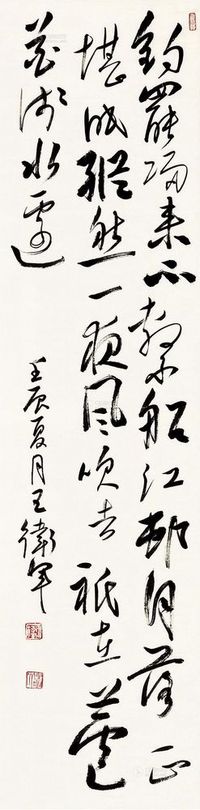 釣罷歸来不繫船江邨月落正
堪眠縱然一夜風吹去祇在蘆
花淺水邊
壬辰夏月王衛軍